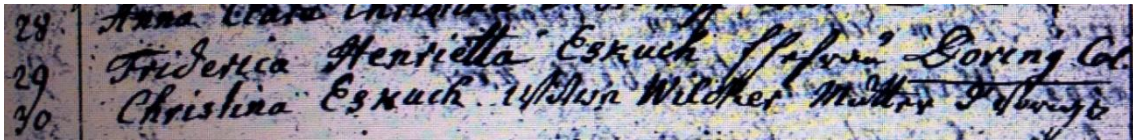 28 Anna Clara
29 Friderica Henrietta Eskuch Ehefrau Doring Col.
30 Christina Eskuch Wilcker Mutter